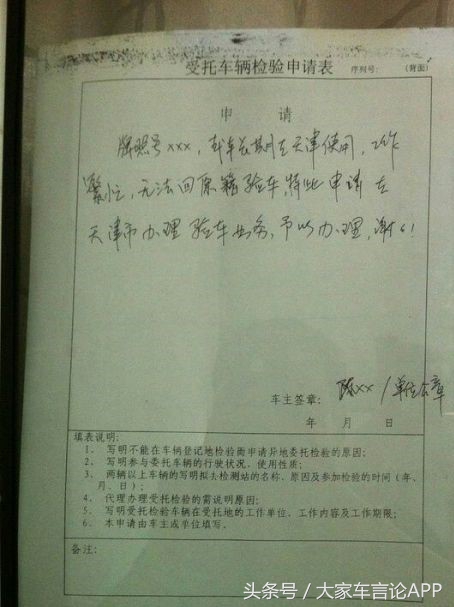 受托车辆检验申请表 序列号: (背面)
申 请
牌照号xxx，我车长期在天津使用，工作
繁忙，无法回原籍验车，特此申请在
天津市办理验车业务，予以办理，谢谢！
陈xx / 单位公章
车主签章：
年 月 日
填表说明：
1、 写明不能在车辆登记地检验而申请异地委托检验的原因；
2、 写明参与委托车辆的行驶状况、使用性质；
3、 两辆以上车辆的写明拟去检测站的名称、原因及参加检验的时间（年、
月、日）；
4、 代理办理受托检验的需说明原因；
5、 写明受托检验车辆在受托地的工作单位、工作内容及工作期限；
6、 本申请由车主或单位填写。
备注：
头条号 / 大家车言论APP